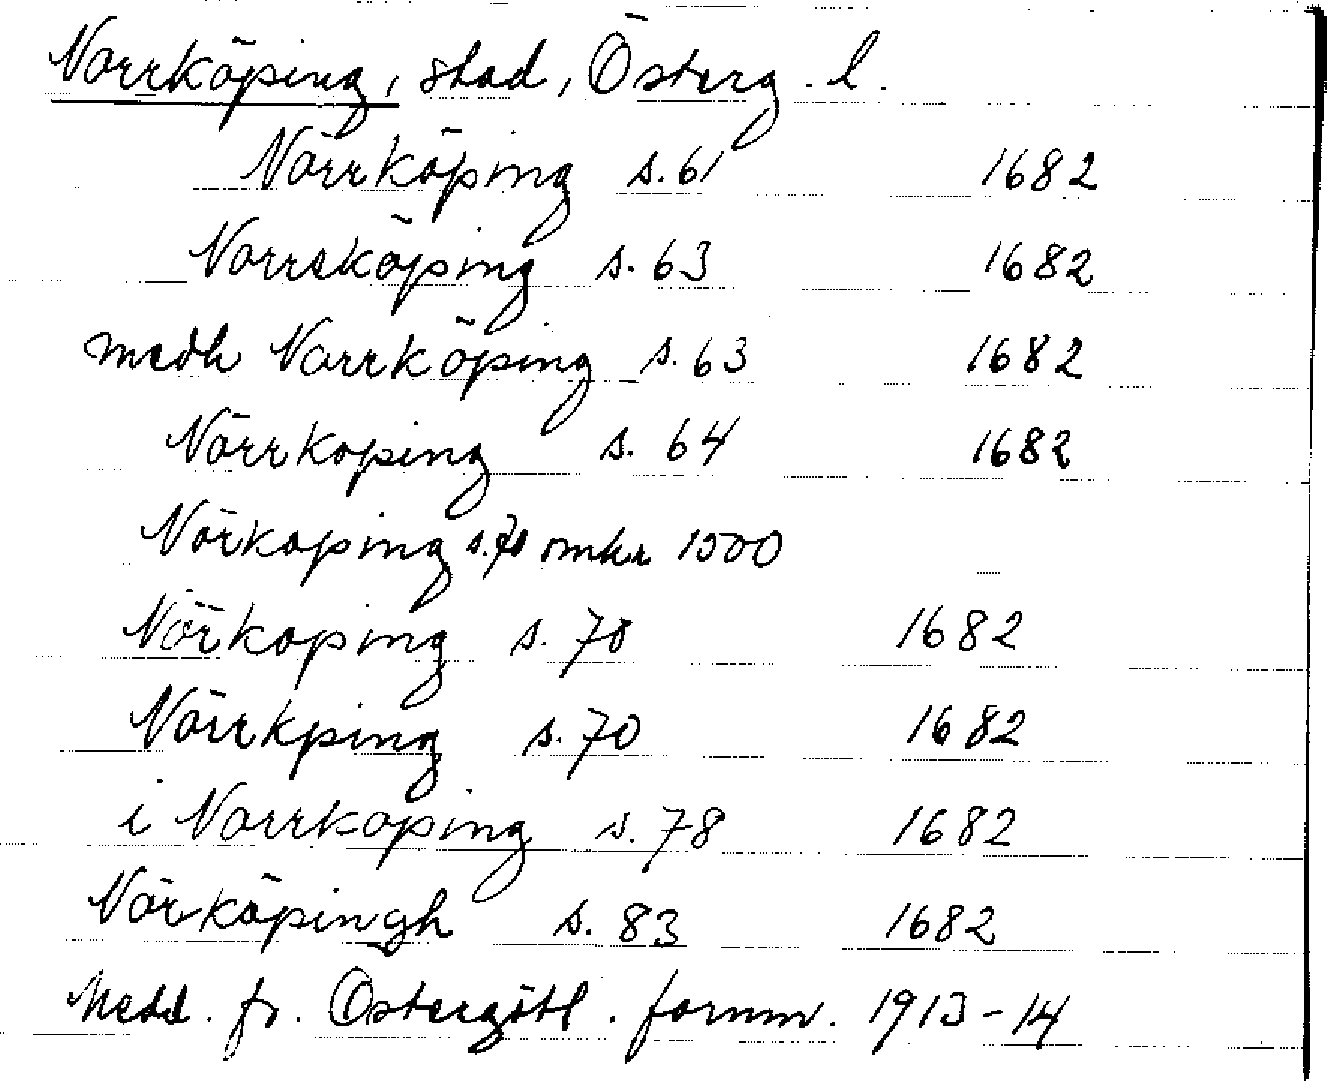 Norrköping, stad, Österg. l.
Nörrköping s. 61 1682
Norrsköping s. 63 1682
medh Norrköping s. 63 1682
Nörrkoping s. 64 1682
Nörkoping s. 70 omkr 1500
Nörkoping s. 70 1682
Nörrkping s. 70 1682
i Norrkoping s. 78 1682
Nörköpingh s. 83 1682
Medd. fr. Östergötl. fornm. 1913-14